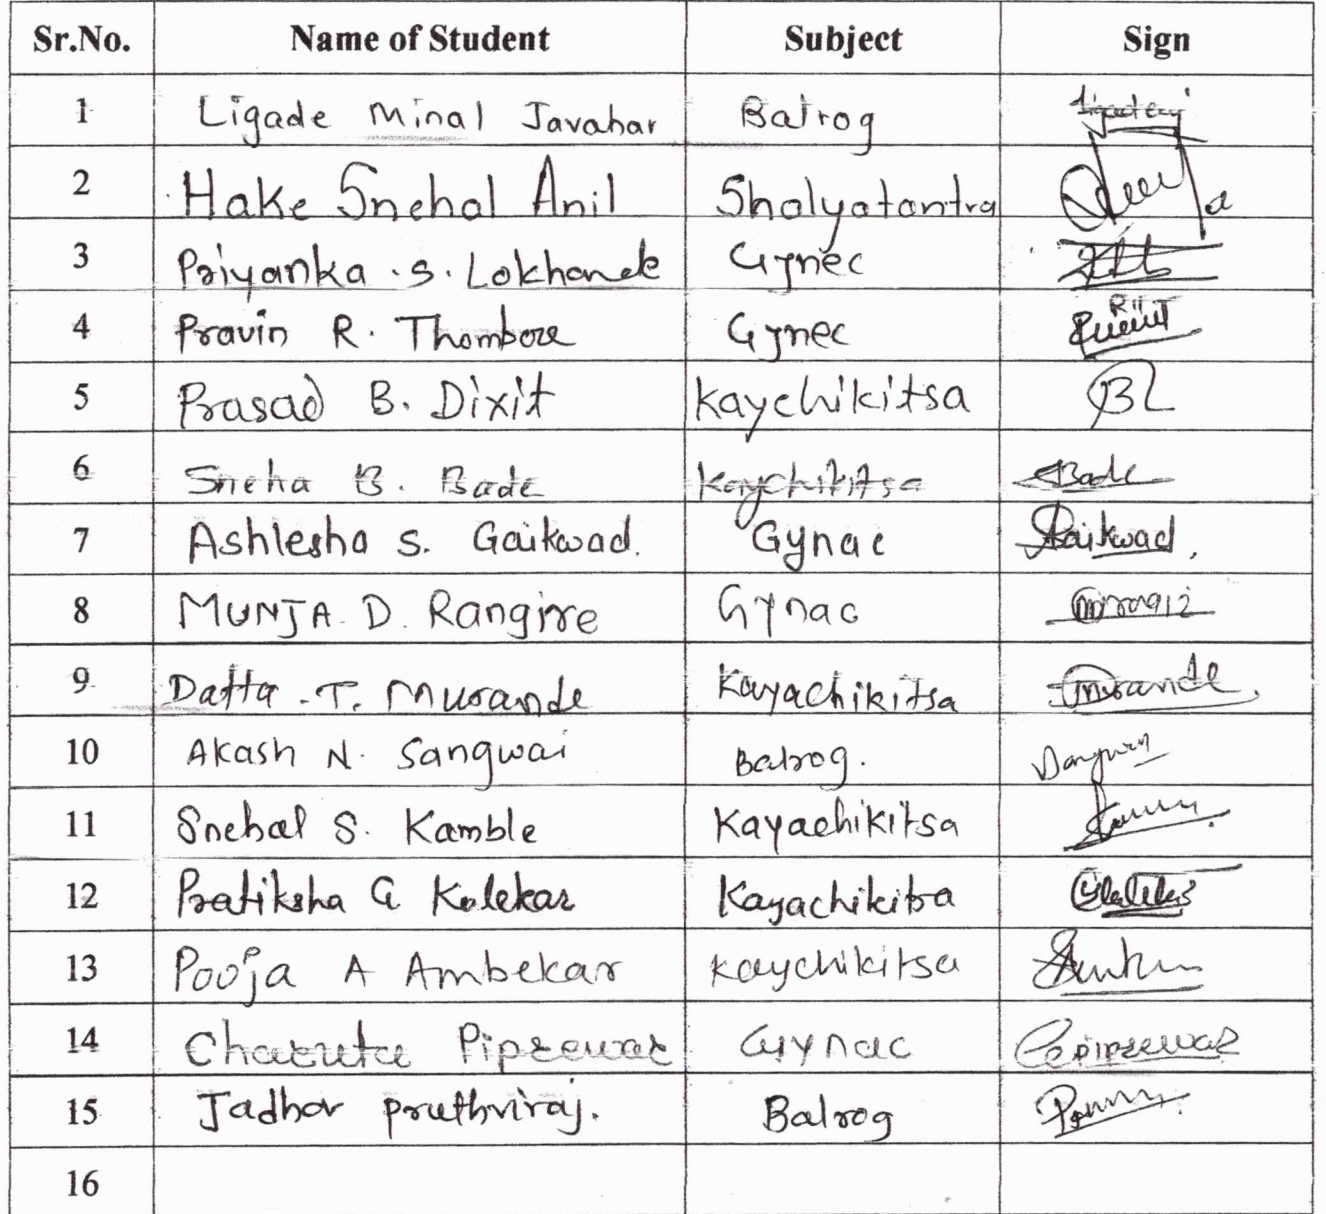 Sr.No. Name of Student Subject Sign
1 Ligade Minal Javahar Balrog
2 Hake Snehal Anil Shalyatantra
3 Priyanka .S. Lokhande Gynec
4 Pravin R. Thombore Gynec
5 Prasad B. Dixit Kaychikitsa BL
6 Sneha B. Bade Kaychikitsa SBade
7 Ashlesha S. Gaikwad. Gynac AGaikwad.
8 MUNJA. D. Rangire Gynac
9 Datta .T. Murande Kayachikitsa Murande.
10 Akash N. Sangwai Balrog.
11 Snehal S. Kamble Kayachikitsa
12 Pratiksha G Kolekar Kayachikitsa
13 Pooja A Ambekar Kaychikitsa
14 Charuta Piprewar Gynac Cpiprewar
15 Jadhav pruthviraj. Balrog
16